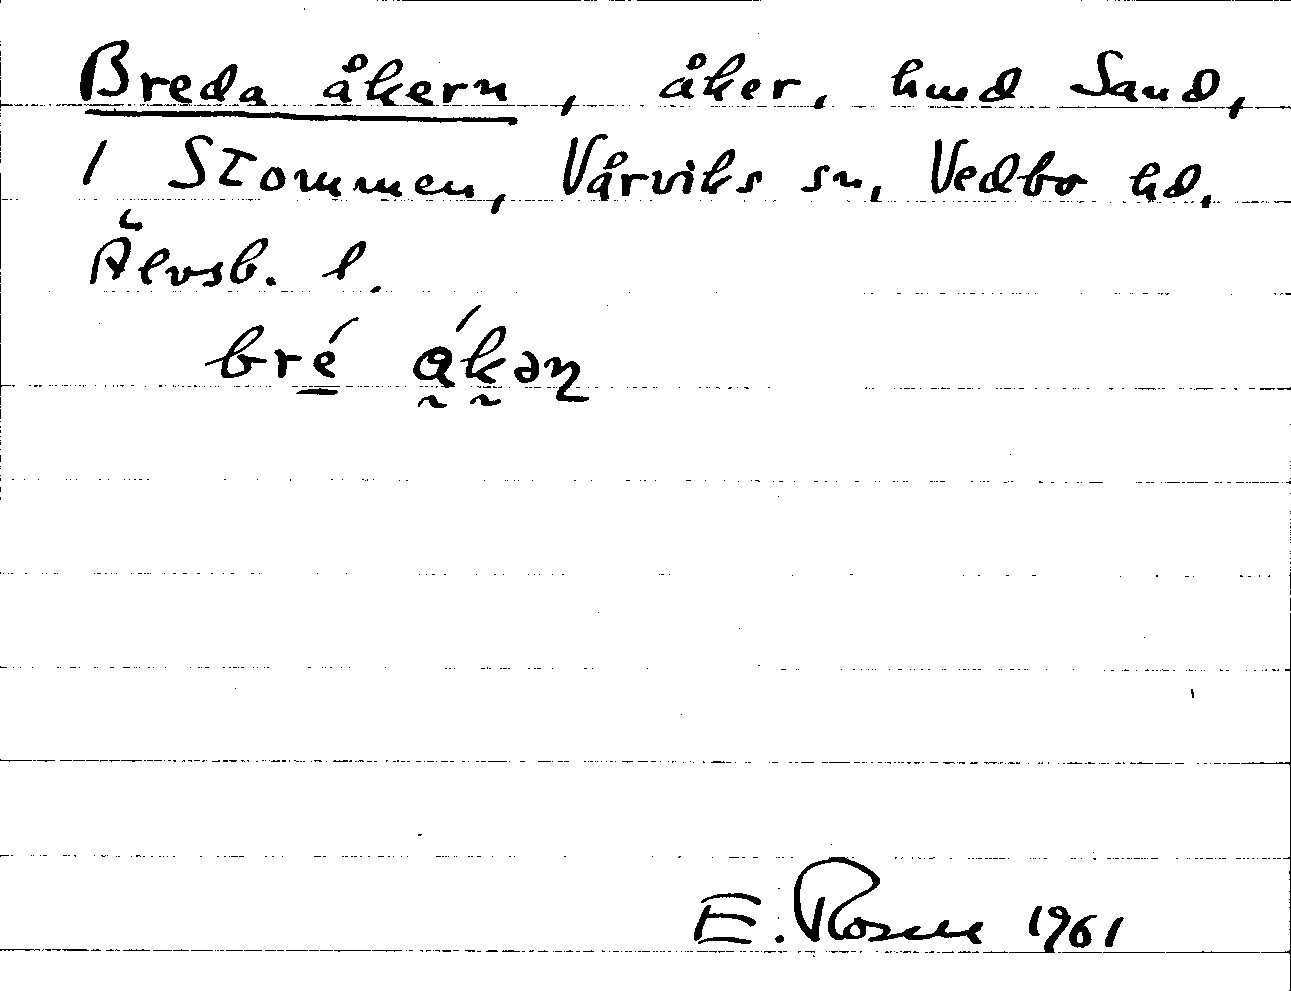 Breda åkern, åker, hmd Sand,
1 Stommen, Vårviks sn, Vedbo hd,
Älvsb. l.
bré̱ ɑ̰́k̰əɳ
E. Rosell 1961